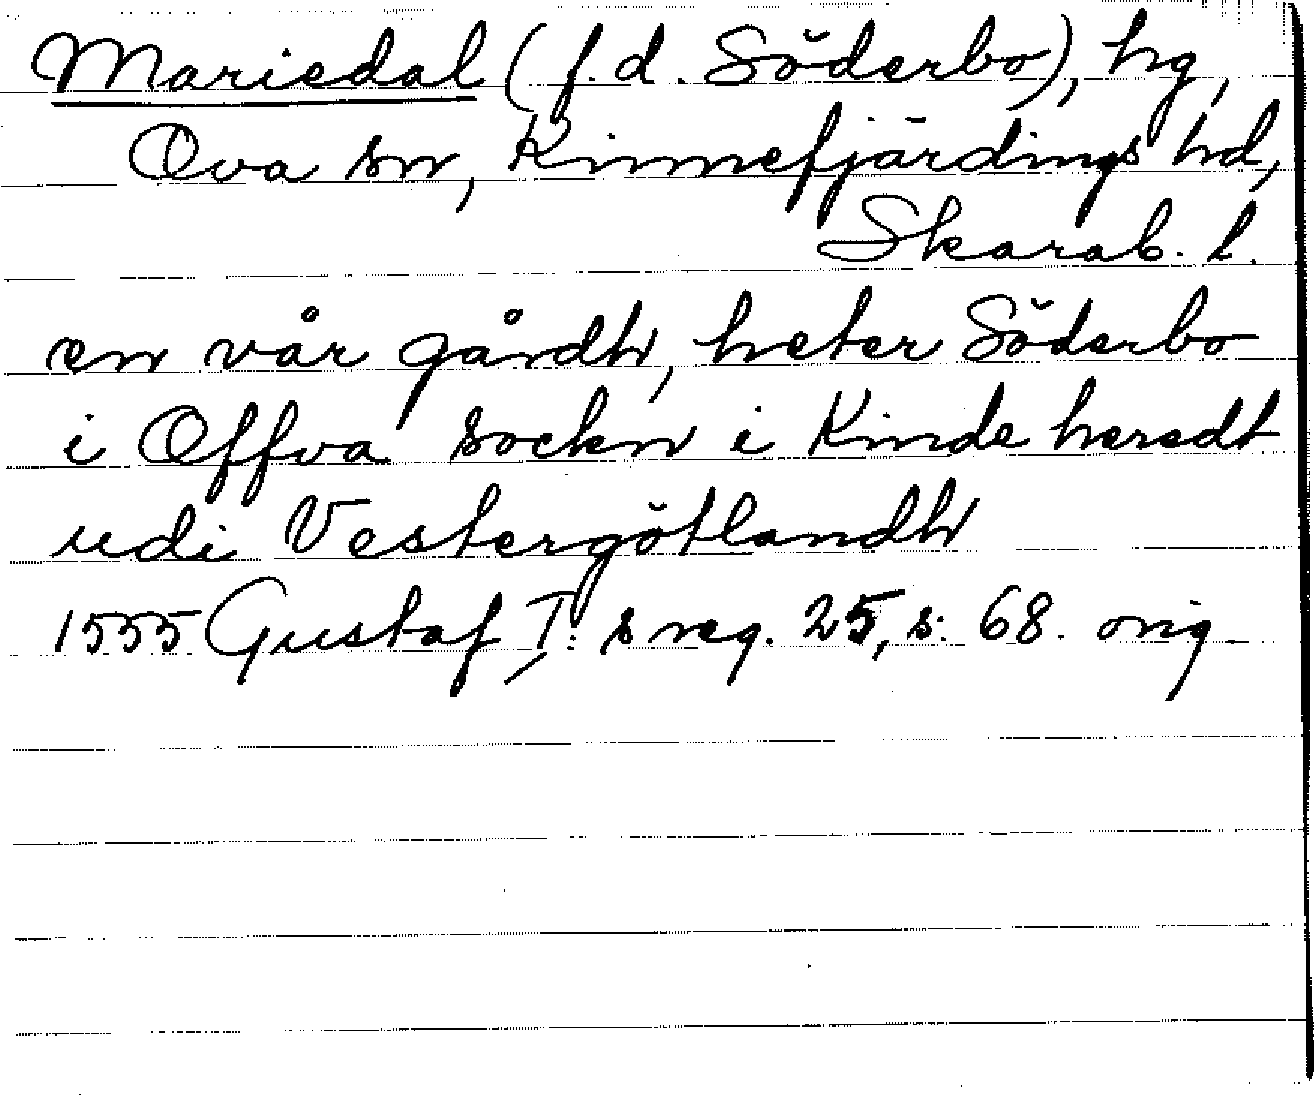 Mariedal (f.d. Söderbo), hg,
Ova sn, Kinnefjärdings hd,
Skarab. l.
en vår gårdh, heter Söderbo
i Offva sockn i Kinde heredt
udi Vestergötlandh
1555 Gustaf I:s reg. 25, s. 68. orig